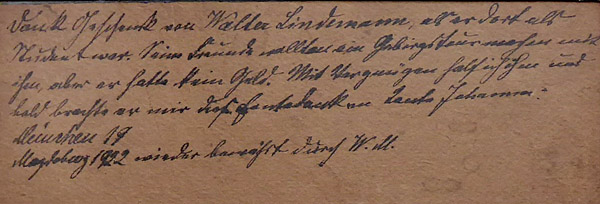 Dank Geschenk von Walter Lindemann, als er dort als
Student war. Seine Freunde wollten ein Gebirgstour machen mit
ihm, aber er hatte kein Geld. Mit Vergnügen half ich ihm und
bald brachte er mir dies Tante Johanna.
München 19
Magdeburg 1922 wieder bewährt durch W. M.